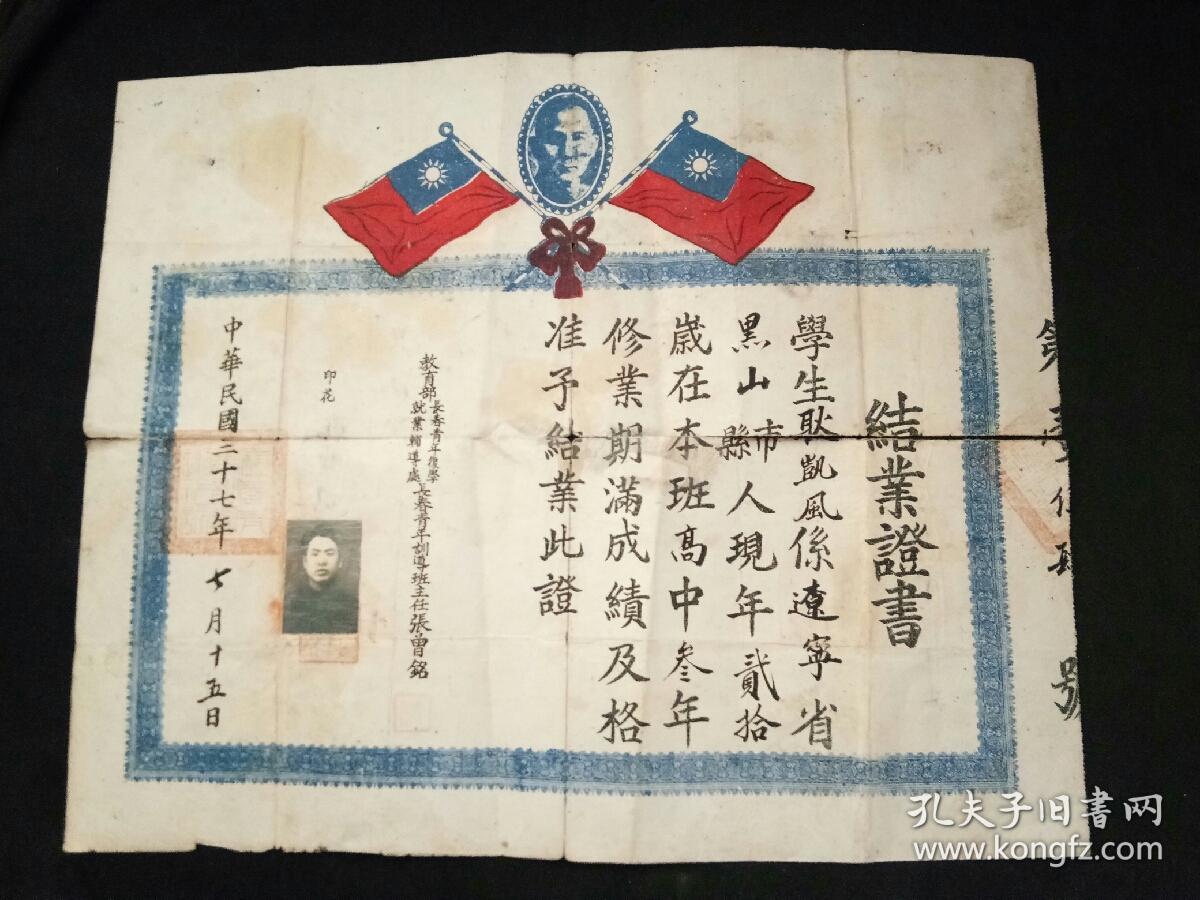 第壹仟 號
結業證書
學生耿凱風係遼寧省
黑山市縣人現年貳拾
歲在本班高中叁年
修業期滿成績及格
准予結業此證
教育部長春青年復學就業輔導處長春青年訓導班主任張曾銘
印花
中華民國三十七年七月十五日
孔夫子旧书网
www.kongfz.com